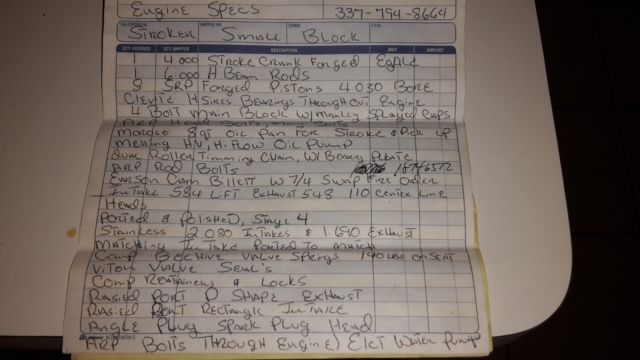 Engine Specs 337-794-8664
Stroker Small Block
QTY. ORDERED QTY. SHIPPED DESCRIPTION UNIT AMOUNT
1 4.000 Stroke Crank Forged Eagle
1 6.000 H Beam Rods
8 SRP Forged Pistons 4.030 Bore
Clevite H Series Bearings Throughout Engine
4 Bolt Main Block W/ Manley Splayed Caps
ARP Head Bolts
Moroso 8qt Oil Pan For Stroke & Pick up
Melling HV, Hi-Flow Oil Pump
Dual Roller Timming Chain, W/ Bearing Plate
ARP Rod Bolts 18746572
Cam Billett W 7/4 Swap Fire Order
Intake 584 Lift Exhaust 548 110 Center Line
Heads
Ported & Polished, Stage 4
Stainless 2.080 Intakes & 1.690 Exhaust
Matching Intake Ported to Match
Comp Beehive Valve Springs 190 LBS on Seat
Viton Valve Seal's
Comp Retainers & Locks
Rasied Port D Shape Exhaust
Rasied Port Rectangle Intake
Angle Plug Spark Plug Head
ARP Bolts Through Engine) Elct Water Pump